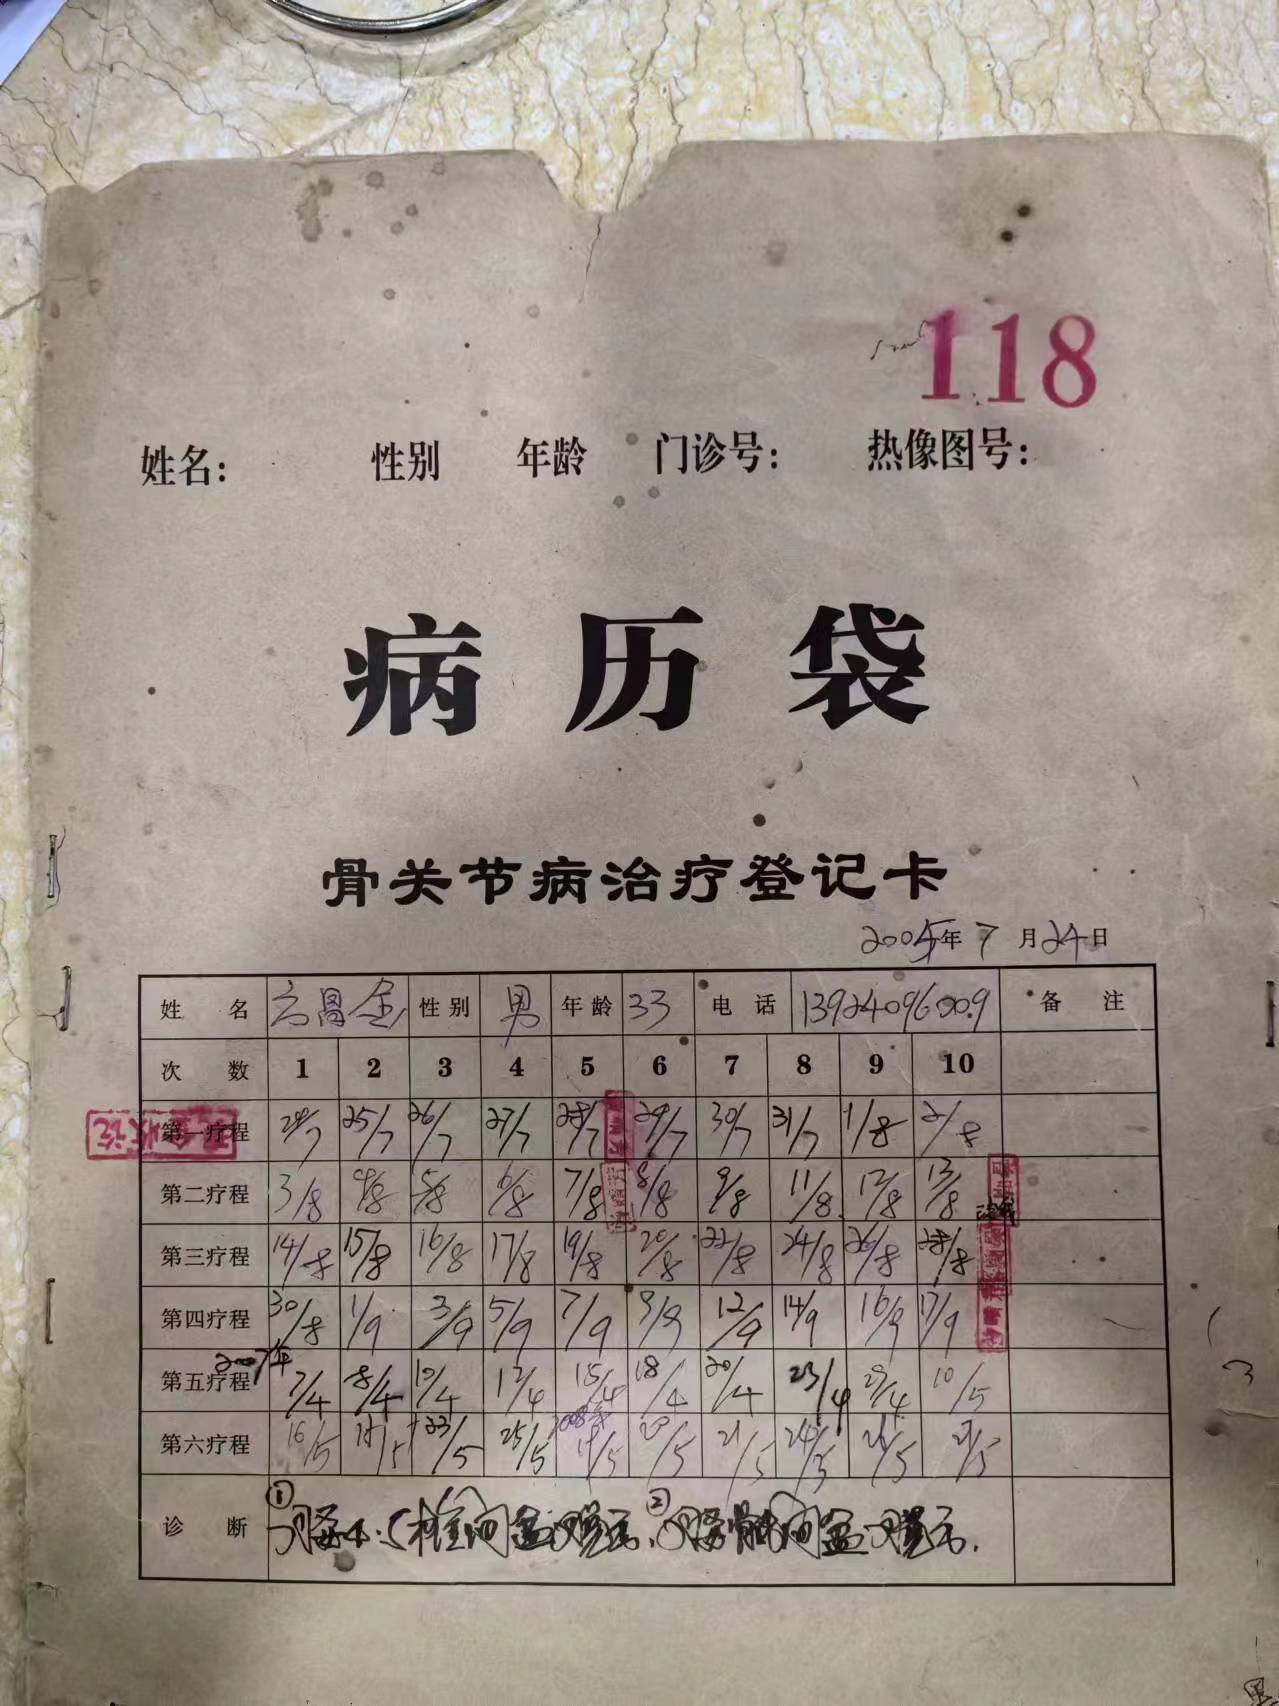 118
姓名： 性别 年龄 门诊号： 热像图号：
病历袋
骨关节病治疗登记卡
2005年7月24日
姓名 性别 男 年龄 33 电话 13924096009 备注
次数 1 2 3 4 5 6 7 8 9 10
第一疗程 24/7 25/7 26/7 27/7 28/7 29/7 30/7 31/7 1/8 2/8
第二疗程 3/8 4/8 5/8 6/8 7/8 8/8 9/8 11/8 12/8 13/8
第三疗程 14/8 15/8 16/8 17/8 19/8 20/8 22/8 24/8 26/8 28/8
第四疗程 30/8 1/9 3/9 5/9 7/9 9/9 12/9 14/9 16/9 17/9
2007年
第五疗程 7/4 8/4 10/4 12/4 15/4 18/4 20/4 23/4 27/4 10/5
2008年
第六疗程 16/5 18/5 23/5 25/5 19/5 20/5 21/5 24/5
诊断 ①腰4.5椎间盘突出.②腰骶间盘突出.